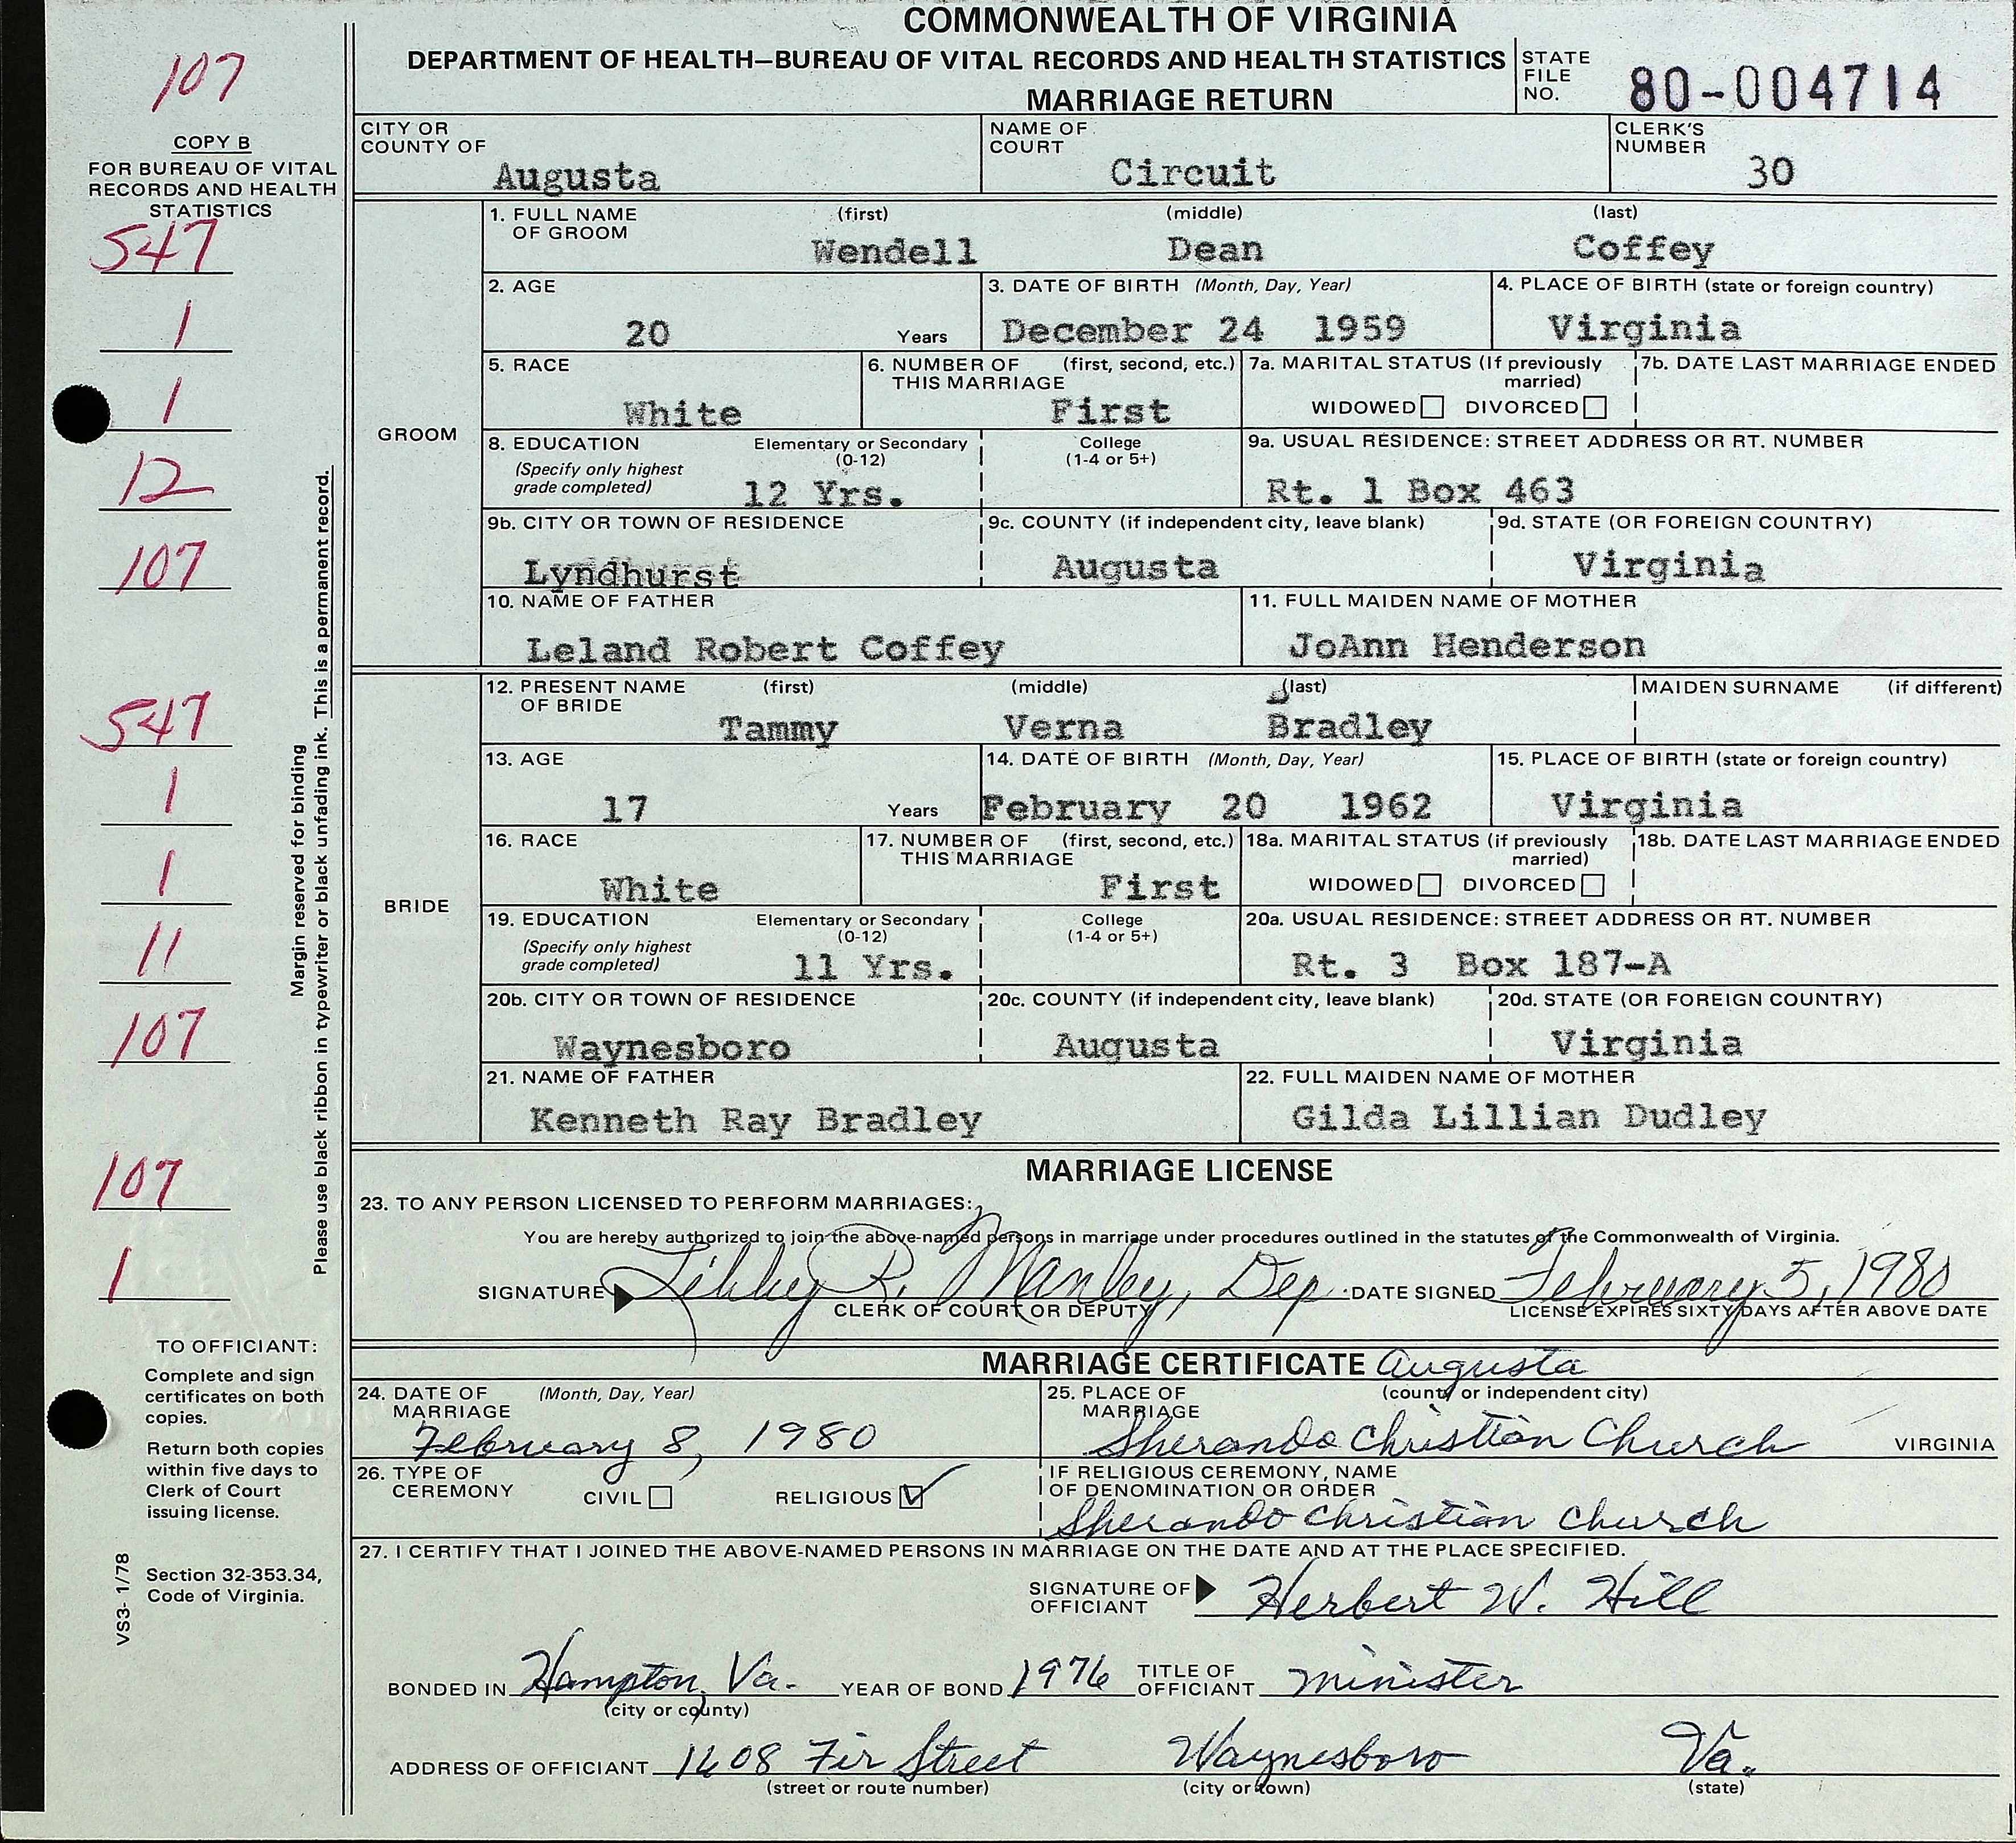 COMMONWEALTH OF VIRGINIA
DEPARTMENT OF HEALTH—BUREAU OF VITAL RECORDS AND HEALTH STATISTICS
MARRIAGE RETURN
STATE FILE NO. 80-004714
107
COPY B
FOR BUREAU OF VITAL
RECORDS AND HEALTH
STATISTICS
547
1
1
12
107
547
1
1
11
107
107
1
Margin reserved for binding
Please use black ribbon in typewriter or black unfading ink. This is a permanent record.
TO OFFICIANT:
Complete and sign
certificates on both
copies.
Return both copies
within five days to
Clerk of Court
issuing license.
Section 32-353.34,
Code of Virginia.
VS3- 1/78
CITY OR COUNTY OF Augusta
NAME OF COURT Circuit
CLERK'S NUMBER 30
GROOM
1. FULL NAME OF GROOM (first) (middle) (last)
Wendell Dean Coffey
2. AGE 20 Years
3. DATE OF BIRTH (Month, Day, Year) December 24 1959
4. PLACE OF BIRTH (state or foreign country) Virginia
5. RACE White
6. NUMBER OF THIS MARRIAGE (first, second, etc.) First
7a. MARITAL STATUS (If previously married) WIDOWED DIVORCED
7b. DATE LAST MARRIAGE ENDED
8. EDUCATION (Specify only highest grade completed) Elementary or Secondary (0-12) 12 Yrs. College (1-4 or 5+)
9a. USUAL RESIDENCE: STREET ADDRESS OR RT. NUMBER Rt. 1 Box 463
9b. CITY OR TOWN OF RESIDENCE Lyndhurst
9c. COUNTY (if independent city, leave blank) Augusta
9d. STATE (OR FOREIGN COUNTRY) Virginia
10. NAME OF FATHER Leland Robert Coffey
11. FULL MAIDEN NAME OF MOTHER JoAnn Henderson
BRIDE
12. PRESENT NAME OF BRIDE (first) (middle) (last)
Tammy Verna Bradley
MAIDEN SURNAME (if different)
13. AGE 17 Years
14. DATE OF BIRTH (Month, Day, Year) February 20 1962
15. PLACE OF BIRTH (state or foreign country) Virginia
16. RACE White
17. NUMBER OF THIS MARRIAGE (first, second, etc.) First
18a. MARITAL STATUS (if previously married) WIDOWED DIVORCED
18b. DATE LAST MARRIAGE ENDED
19. EDUCATION (Specify only highest grade completed) Elementary or Secondary (0-12) 11 Yrs. College (1-4 or 5+)
20a. USUAL RESIDENCE: STREET ADDRESS OR RT. NUMBER Rt. 3 Box 187-A
20b. CITY OR TOWN OF RESIDENCE Waynesboro
20c. COUNTY (if independent city, leave blank) Augusta
20d. STATE (OR FOREIGN COUNTRY) Virginia
21. NAME OF FATHER Kenneth Ray Bradley
22. FULL MAIDEN NAME OF MOTHER Gilda Lillian Dudley
MARRIAGE LICENSE
23. TO ANY PERSON LICENSED TO PERFORM MARRIAGES:
You are hereby authorized to join the above-named persons in marriage under procedures outlined in the statutes of the Commonwealth of Virginia.
SIGNATURE Libby R. Manley, Dep. DATE SIGNED February 5, 1980
CLERK OF COURT OR DEPUTY LICENSE EXPIRES SIXTY DAYS AFTER ABOVE DATE
MARRIAGE CERTIFICATE Augusta
24. DATE OF MARRIAGE (Month, Day, Year) February 8, 1980
25. PLACE OF MARRIAGE (county or independent city) Sherando Christian Church VIRGINIA
26. TYPE OF CEREMONY CIVIL RELIGIOUS ✓
IF RELIGIOUS CEREMONY, NAME OF DENOMINATION OR ORDER Sherando Christian Church
27. I CERTIFY THAT I JOINED THE ABOVE-NAMED PERSONS IN MARRIAGE ON THE DATE AND AT THE PLACE SPECIFIED.
SIGNATURE OF OFFICIANT Herbert W. Hill
BONDED IN Hampton, Va. YEAR OF BOND 1976 TITLE OF OFFICIANT minister
(city or county)
ADDRESS OF OFFICIANT 1608 Fir Street Waynesboro Va.
(street or route number) (city or town) (state)